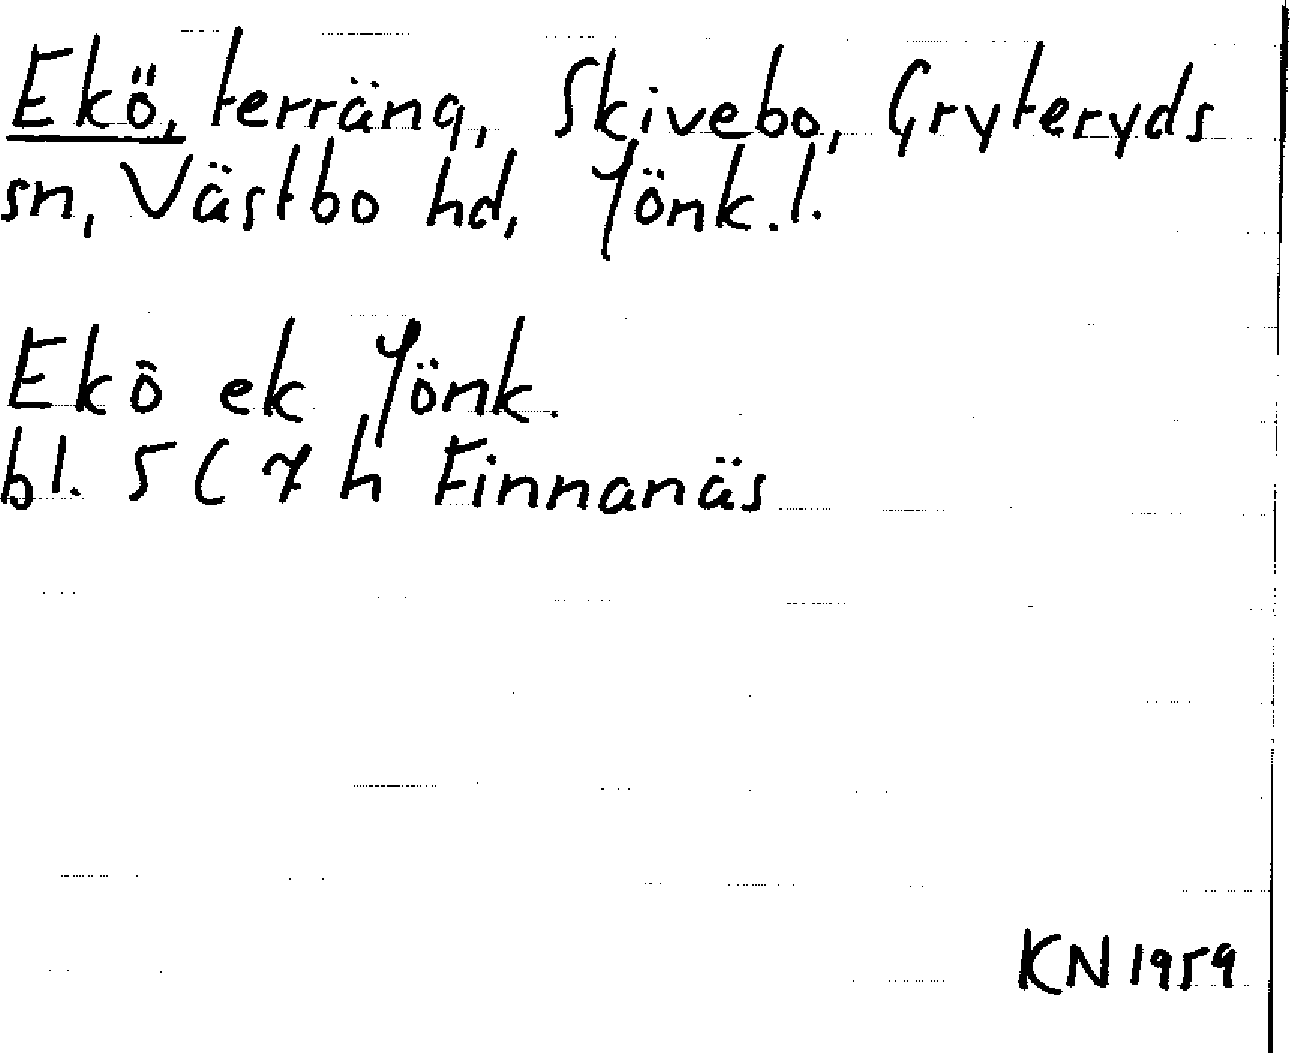 Ekö, terräng, Skivebo, Gryteryds
sn, Västbo hd, Jönk.l.
Ekö ek Jönk.
bl. 5 C 7 h Finnanäs
KN 1959